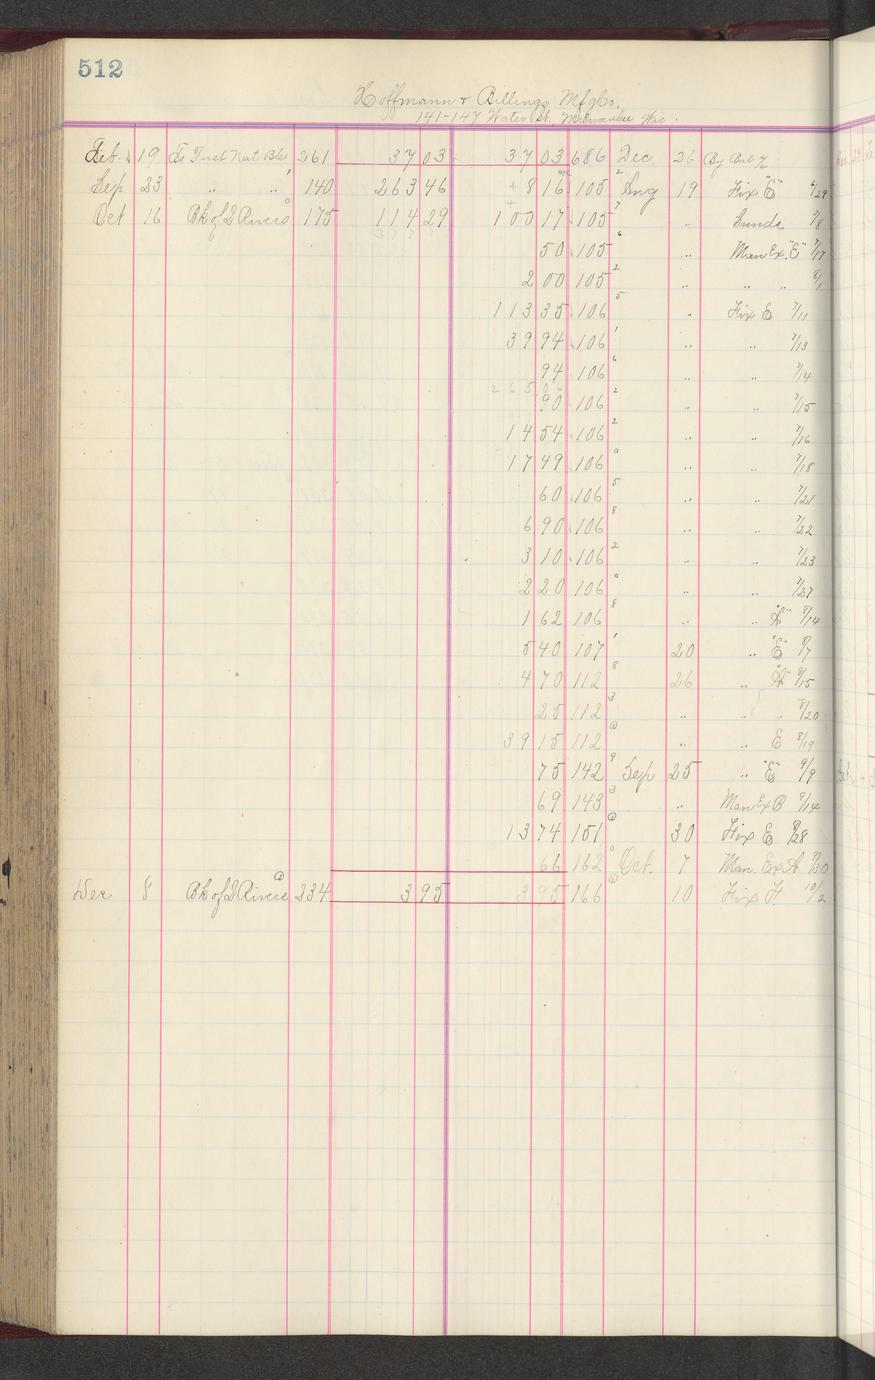 512
Hoffmann & Billings Mfg Co.
141-147 Water St. Milwaukee Wis.
Feb. 19 To First Nat Bk 261 37 03 37 03 686 Dec 26 By Bal
Sep 23 " " 140 263 46 + 8 16 105 Aug 19 Fix "E" 6/29
Oct 16 Bk of 2 Rivers 175 114 29 100 17 105 " Sunds 7/8
50 105 " Man Ex. "E" 7/17
2 00 105 " " " 8/1
113 35 106 " Fix E 7/11
39 94 106 " " 7/13
94 106 " " 7/14
265 06
90 106 " " 7/15
14 54 106 " " 7/16
17 49 106 " " 7/18
60 106 " " 7/21
6 90 106 " " 7/22
3 10 106 " " 7/23
2 20 106 " " 7/27
1 62 106 " " "A" 8/14
5 40 107 20 " "E" 8/7
4 70 112 26 " "A" 8/15
25 112 " " " 8/20
39 15 112 " " E 8/19
75 142 Sep 25 " "E" 9/9
69 143 " Man Ex B 9/14
13 74 151 30 Fix E 9/28
66 162 Oct. 7 Man. Ex A 9/30
Dec 8 Bk of 2 Rivers 234 3 95 3 95 166 10 Fix F 10/2